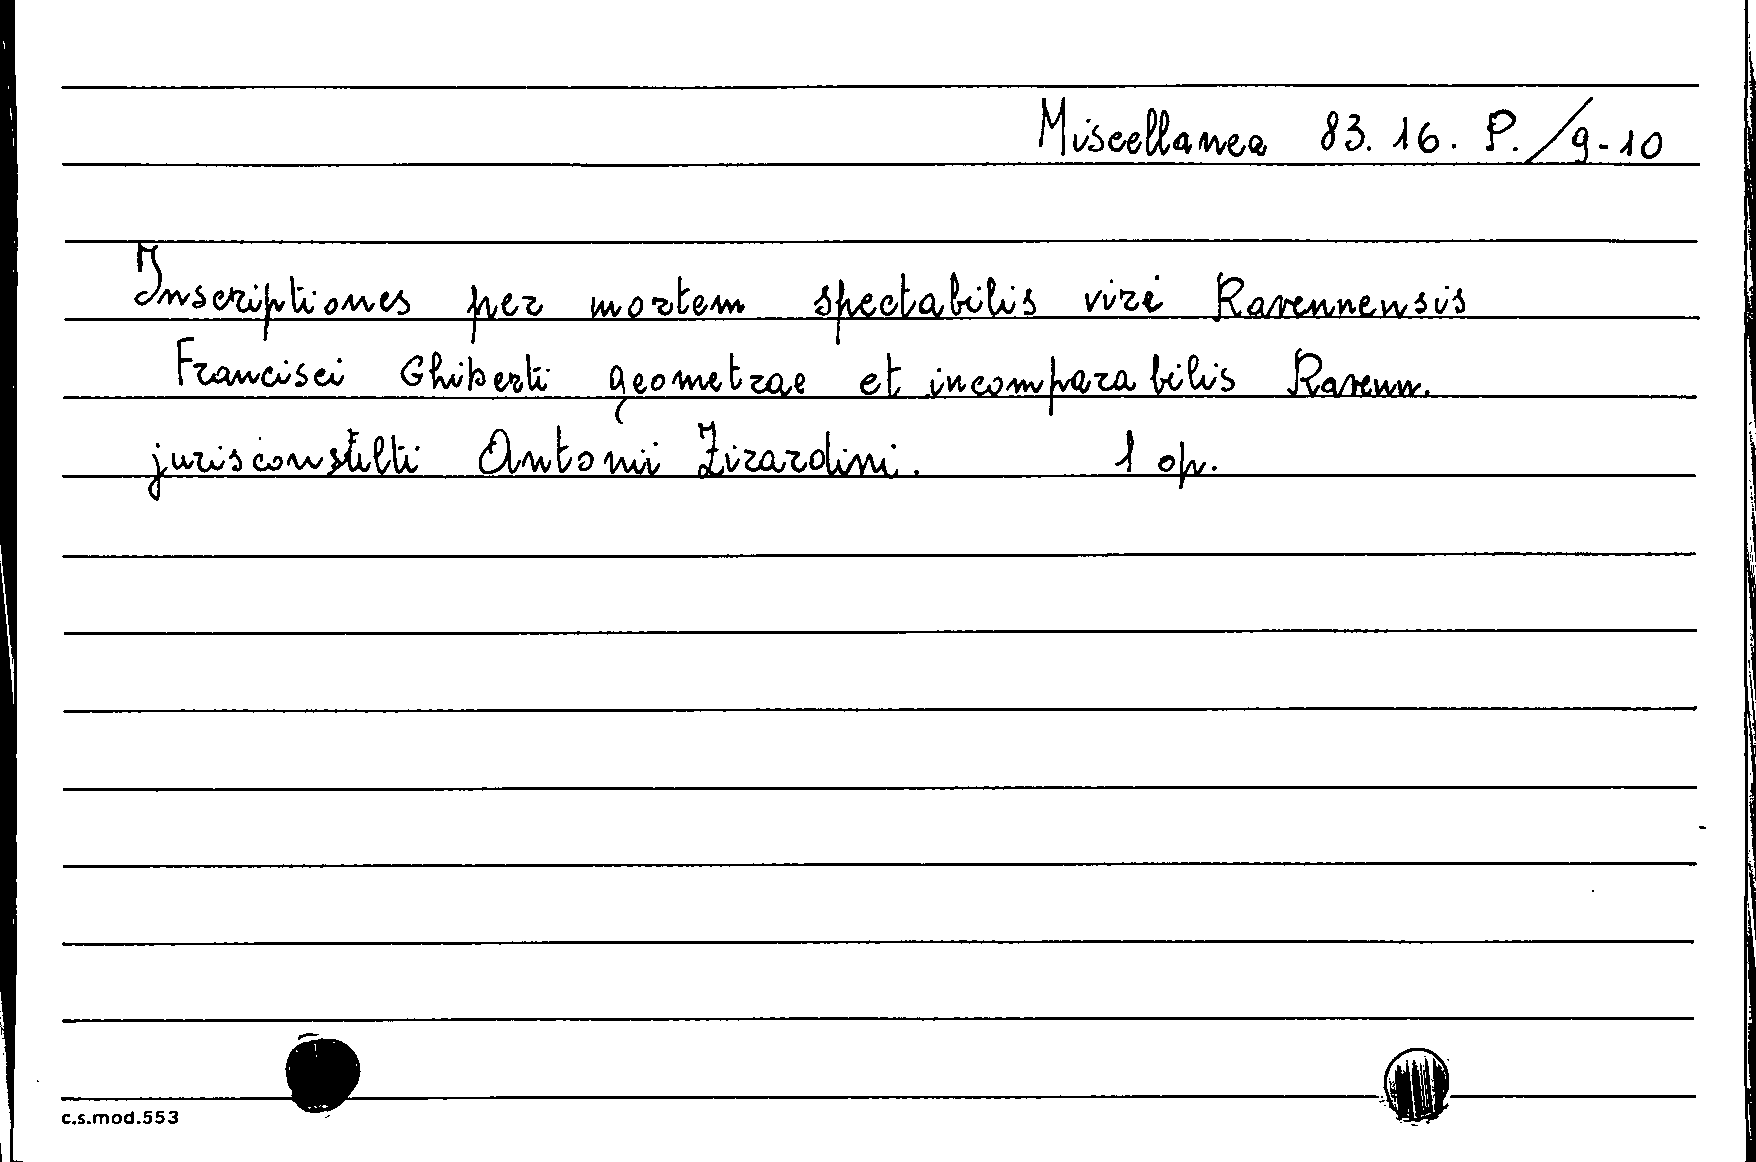 Miscellanea 83. 16. P./9-10
Inscriptiones per mortem spectabilis viri Ravennensis
Francisci Ghiberti geometrae et incomparabilis Ravenn.
jurisconsulti Antonii Zirardini. 1 op.
c.s.mod.553